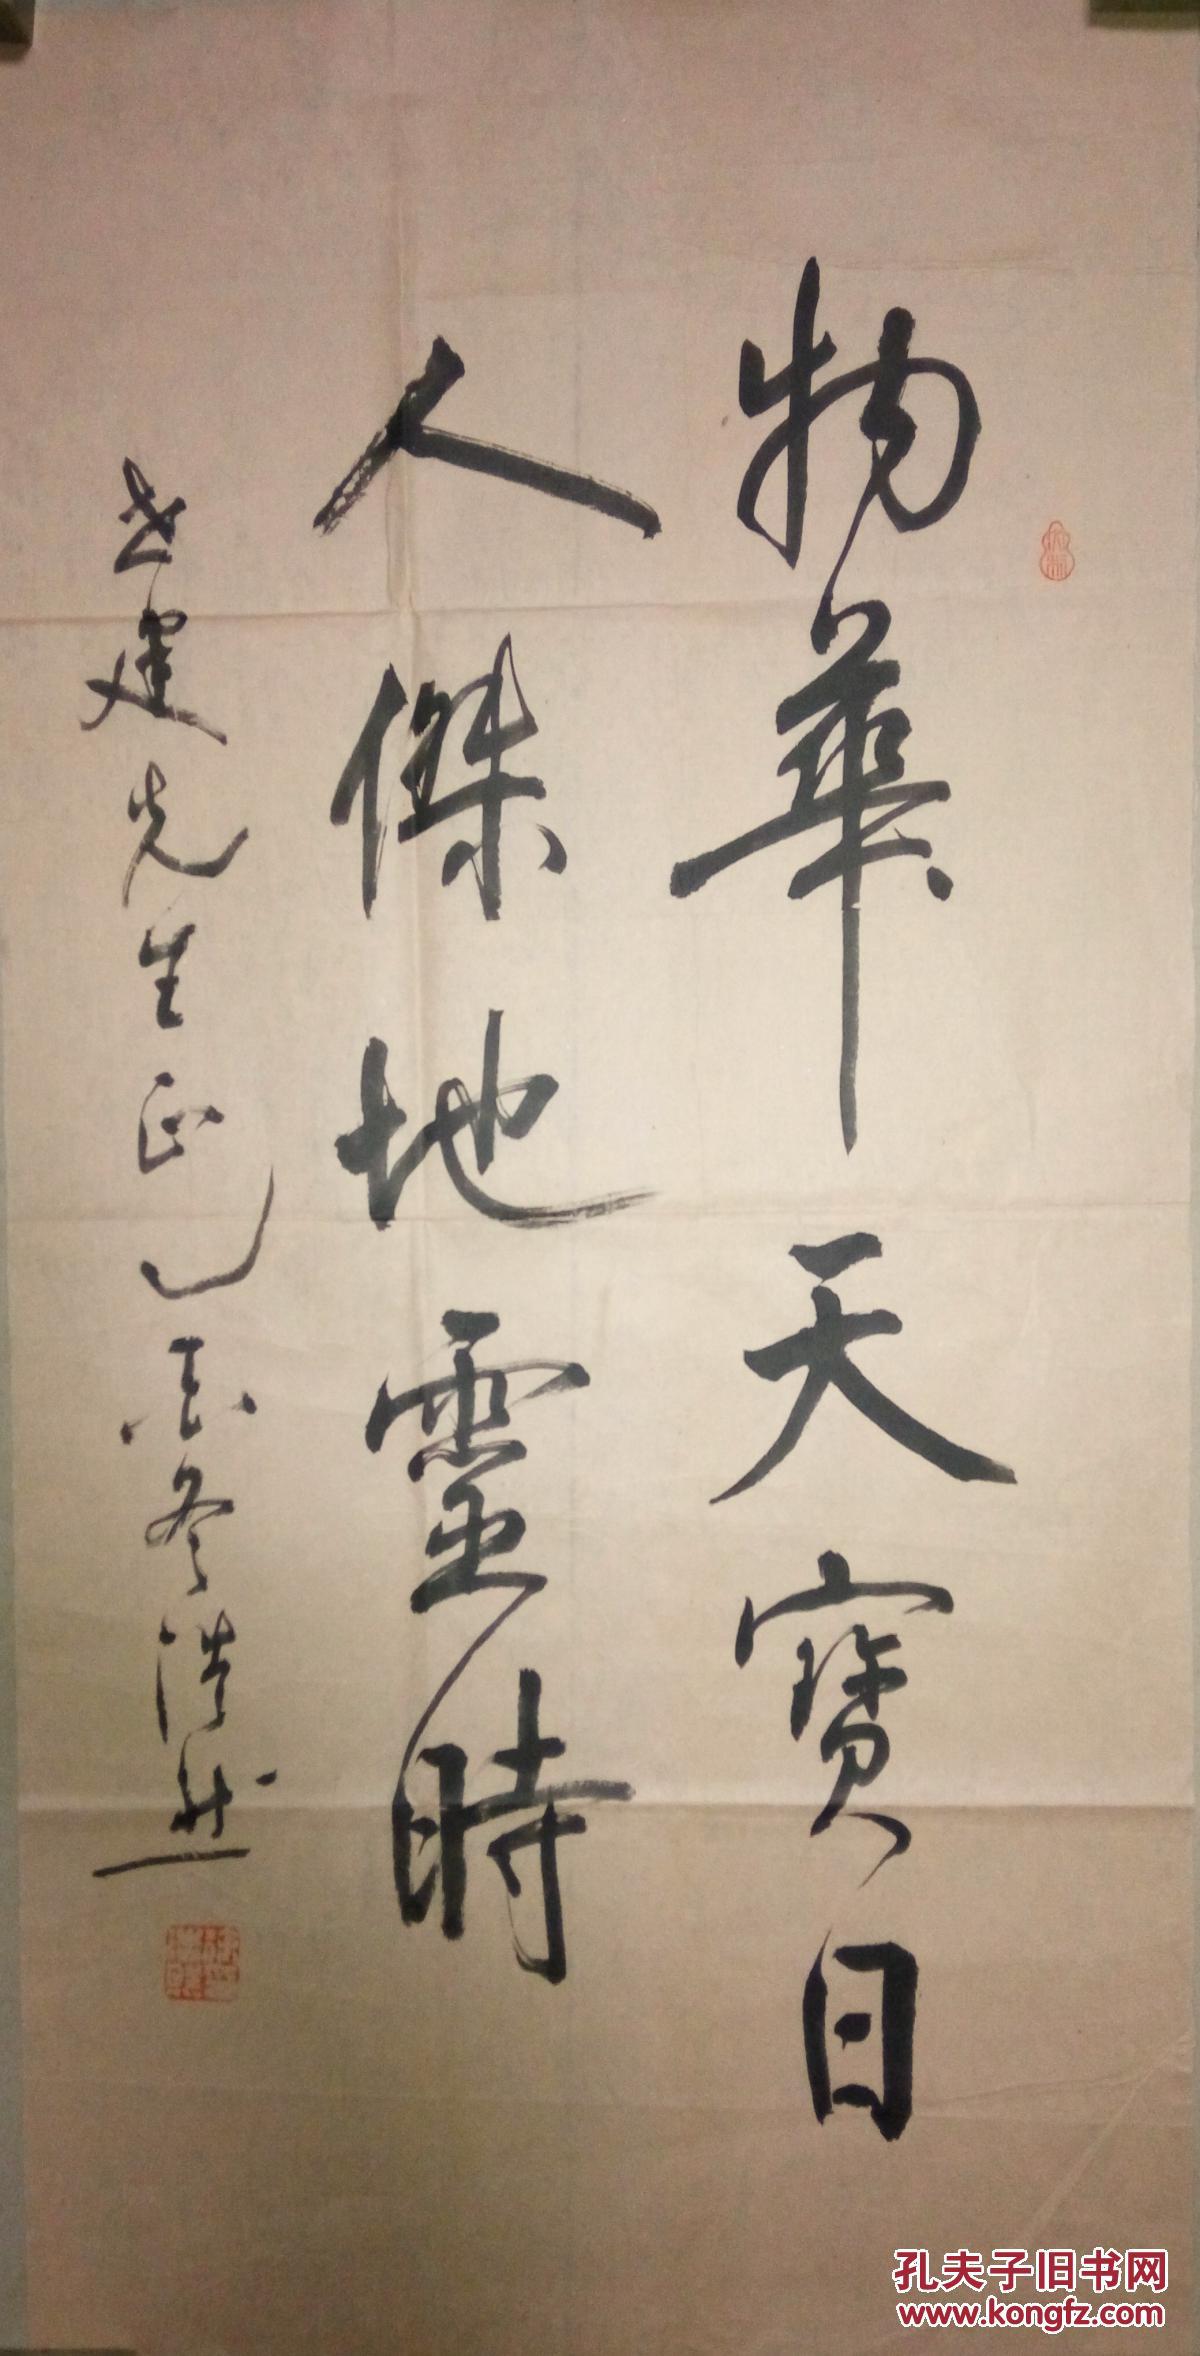 物華天寶日
人傑地靈時
世建先生正之 志冬浩然
孔夫子旧书网
www.kongfz.com